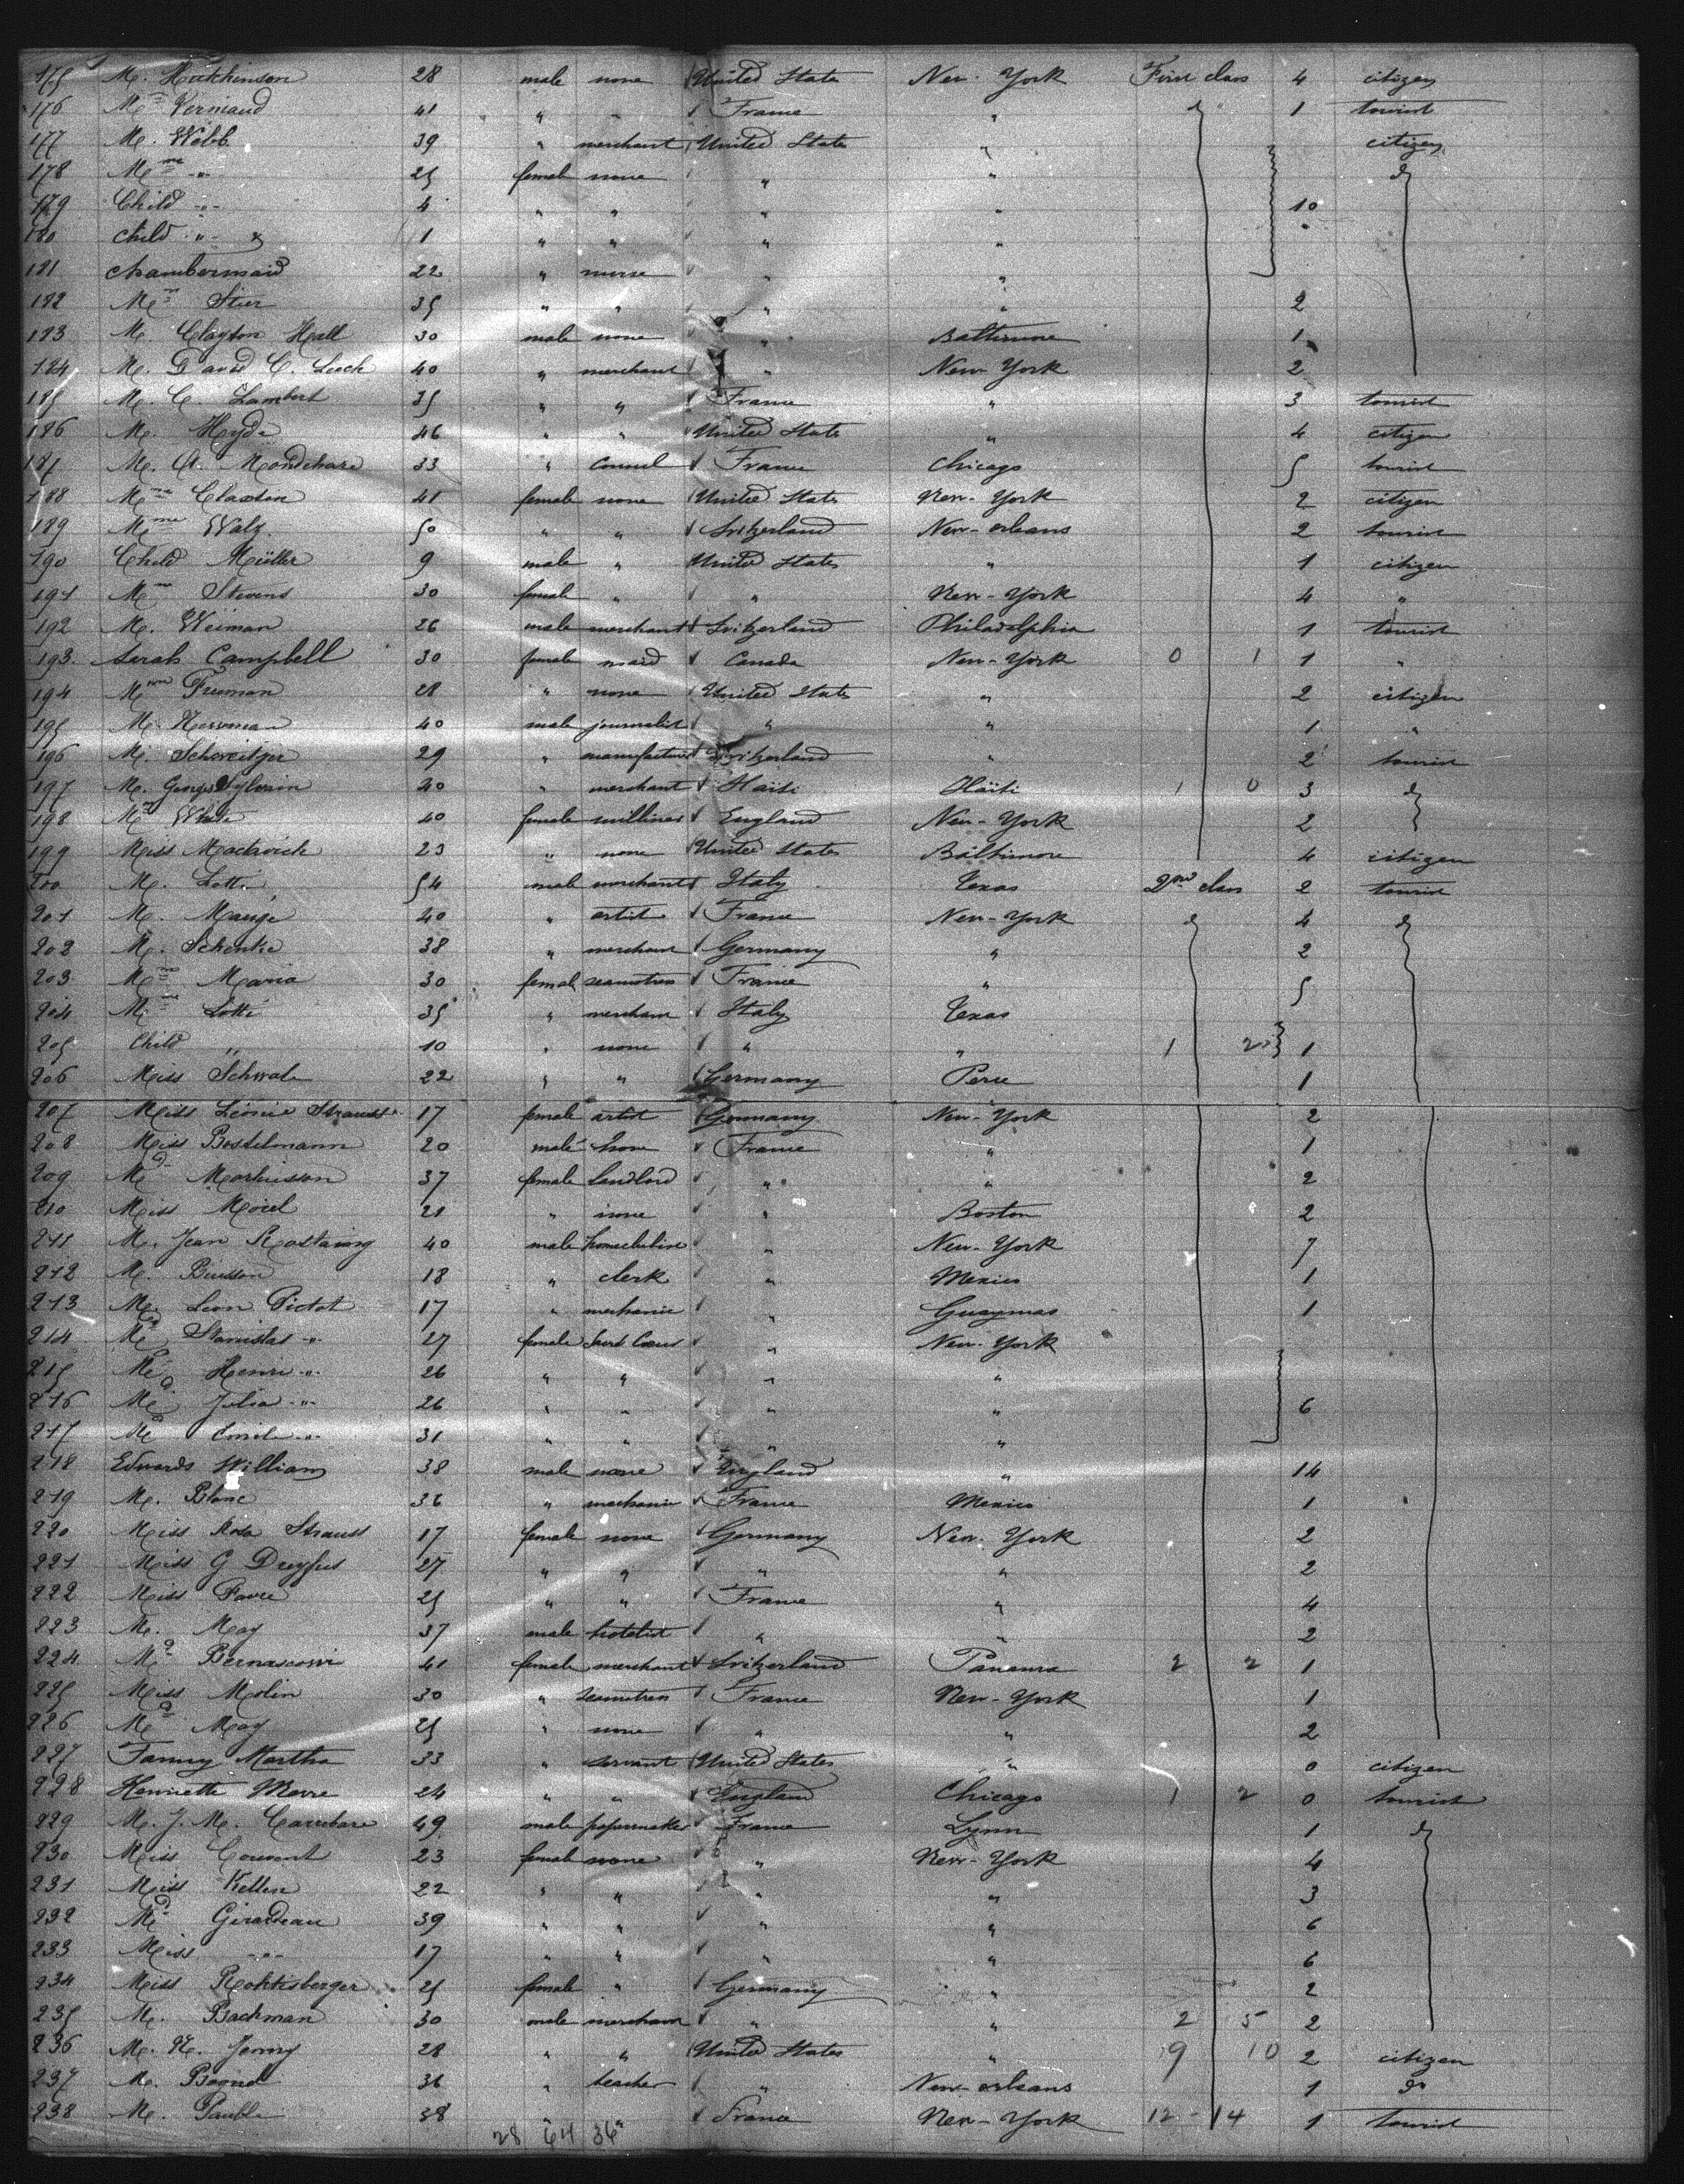 175 M. Hutchinson 28 male none United State New-York First class 4 citizen
176 Mme Vermaud 41 " " France " d 1 tourist
177 M. Webb 39 " merchant United State " citizen
178 Mme -"- 25 female none " " do
179 Child -"- 4 " " " " 10
180 child -"- 1 " " " "
181 chambermaid 22 " nurse " "
182 Mme Stier 35 " " " " 2
183 M. Clayton Hall 30 male none " Baltimore 1
184 M. David C. Leech 40 " merchant " New-York 2
185 M. C. Lambert 35 " " France " 3 tourist
186 M. Hyde 46 " " United State " 4 citizen
187 M. A. Mondehare 33 " consul France Chicago 5 tourist
188 Mme Claxton 41 female none United State New-York 2 citizen
189 Mme Walz 50 " " Svitzerland New-orleans 2 tourist
190 Child Müller 9 male " United States " 1 citizen
191 Mme Stevens 30 female " " New-York 4 "
192 M. Weiman 26 male merchant Svitzerland Philadelphia 1 tourist
193. Serah Campbell 30 female maid Canada New-York 0 1 1 "
194 Mme Freeman 28 " none United State " 2 citizen
195 M. Newman 40 male journalist " " 1 "
196 M. Schweitzer 29 " manufacturer Svitzerland " 2 tourist
197 M. Georges Sylvain 40 " merchant Haïti Haïti 1 0 3 do
198 Mme White 40 female milliner England New-York 2
199 Miss Mactavich 23 " none United States Baltimore 4 citizen
200 M. Lotti 54 male merchant Italy Texas 2nd class 2 tourist
201 M. Maugé 40 " artist France New-York do 4 do
202 M. Schenke 38 " merchant Germany " 2
203 Mme Maria 30 femal seamstress France " 5
204 Mme Lotti 35 " merchant Italy Texas
205 Child " 10 " none " " 1 2 1
206 Miss Schwab 22 " " Germany Peru 1
207 Miss Léonie Strauss 17 female artist Germany New-York 2
208 Miss Bostelmann 20 male none France " 1
209 Md Markinson 37 female landlord " " 2
210 Miss Morel 21 " none " Boston 2
211 M. Jean Rostaing 40 male " New-York 7
212 M. Buisson 18 " clerk " Mexico 1
213 M. Leon Pictot 17 " mechanic " Guaymas 1
214 Md Stanislas -"- 27 female Sacré Coeur " New-York
215 Md Henri -"- 26 " " " "
216 Md Julia -"- 26 " " " " 6
217 Md Emile -"- 31 " " " "
218 Edwards William 38 male none England " 14
219 M. Blanc 36 " mechanic France Mexico 1
220 Miss Rosa Strauss 17 female none Germany New-York 2
221 Miss G Dreyfus 27 " " " " 2
222 Miss Favre 25 " " France " 4
223 M. May 37 male hotelist " " 2
224 Md Bernasconi 41 female merchant Svitzerland Panama 2 2 1
225 Miss Molin 30 " seamstress France New-York 1
226 Md May 25 " none " " 2
227 Fanny Martha 33 " servant United States " 0 citizen
228 Henriette Morre 24 " " England Chicago 1 2 0 tourist
229 M. J. M. Carrebare 49 male papermaker France Lynn 1 do
230 Miss Couvent 23 female none " New-York 4
231 Miss Keller 22 " " " " 3
232 Md Girardeau 39 " " " " 6
233 Miss -"- 17 " " " " 6
234 Miss Rohtisberger 25 female " Germany " 2
235 M. Bachman 30 male merchant " " 2 5 2
236 M. N. Jenny 28 " " United States " 9 10 2 citizen
237 M. 36 " teacher " New-orleans 1 do
238 M. 38 " " France New-York 12-14 1 tourist
28 64 36